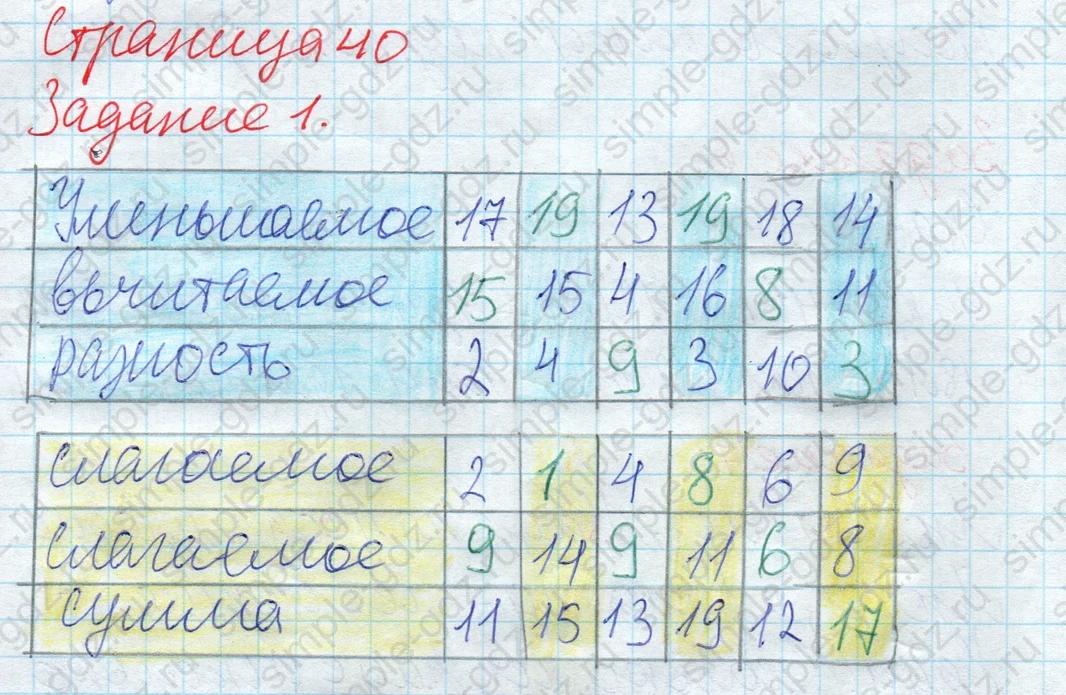 Страница 40
Задание 1.
Уменьшаемое 17 19 13 19 18 14
вычитаемое 15 15 4 16 8 11
разность 2 4 9 3 10 3
слагаемое 2 1 4 8 6 9
слагаемое 9 14 9 11 6 8
сумма 11 15 13 19 12 17
simple-gdz.ru